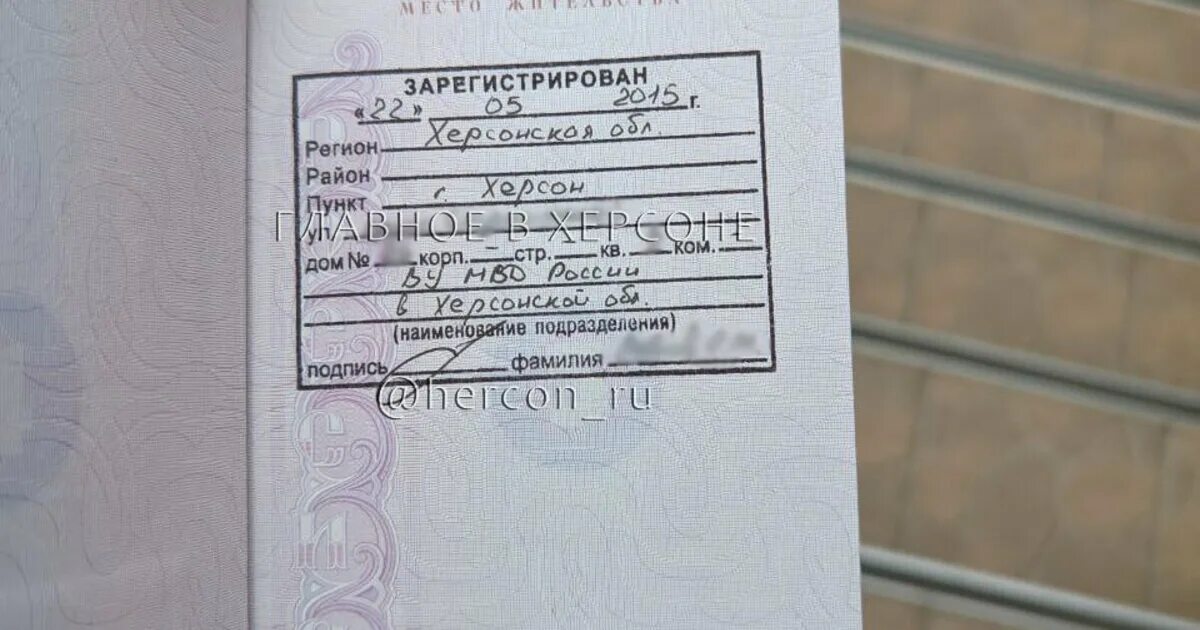 МЕСТО ЖИТЕЛЬСТВА
ЗАРЕГИСТРИРОВАН
«22» 05 2015 г.
Регион Херсонская обл.
Район
Пункт г. Херсон
ул.
ГЛАВНОЕ В ХЕРСОНЕ
дом № корп. – стр. – кв. ком. –
ВУ МВД России
в Херсонской обл.
(наименование подразделения)
подпись фамилия
@hercon_ru